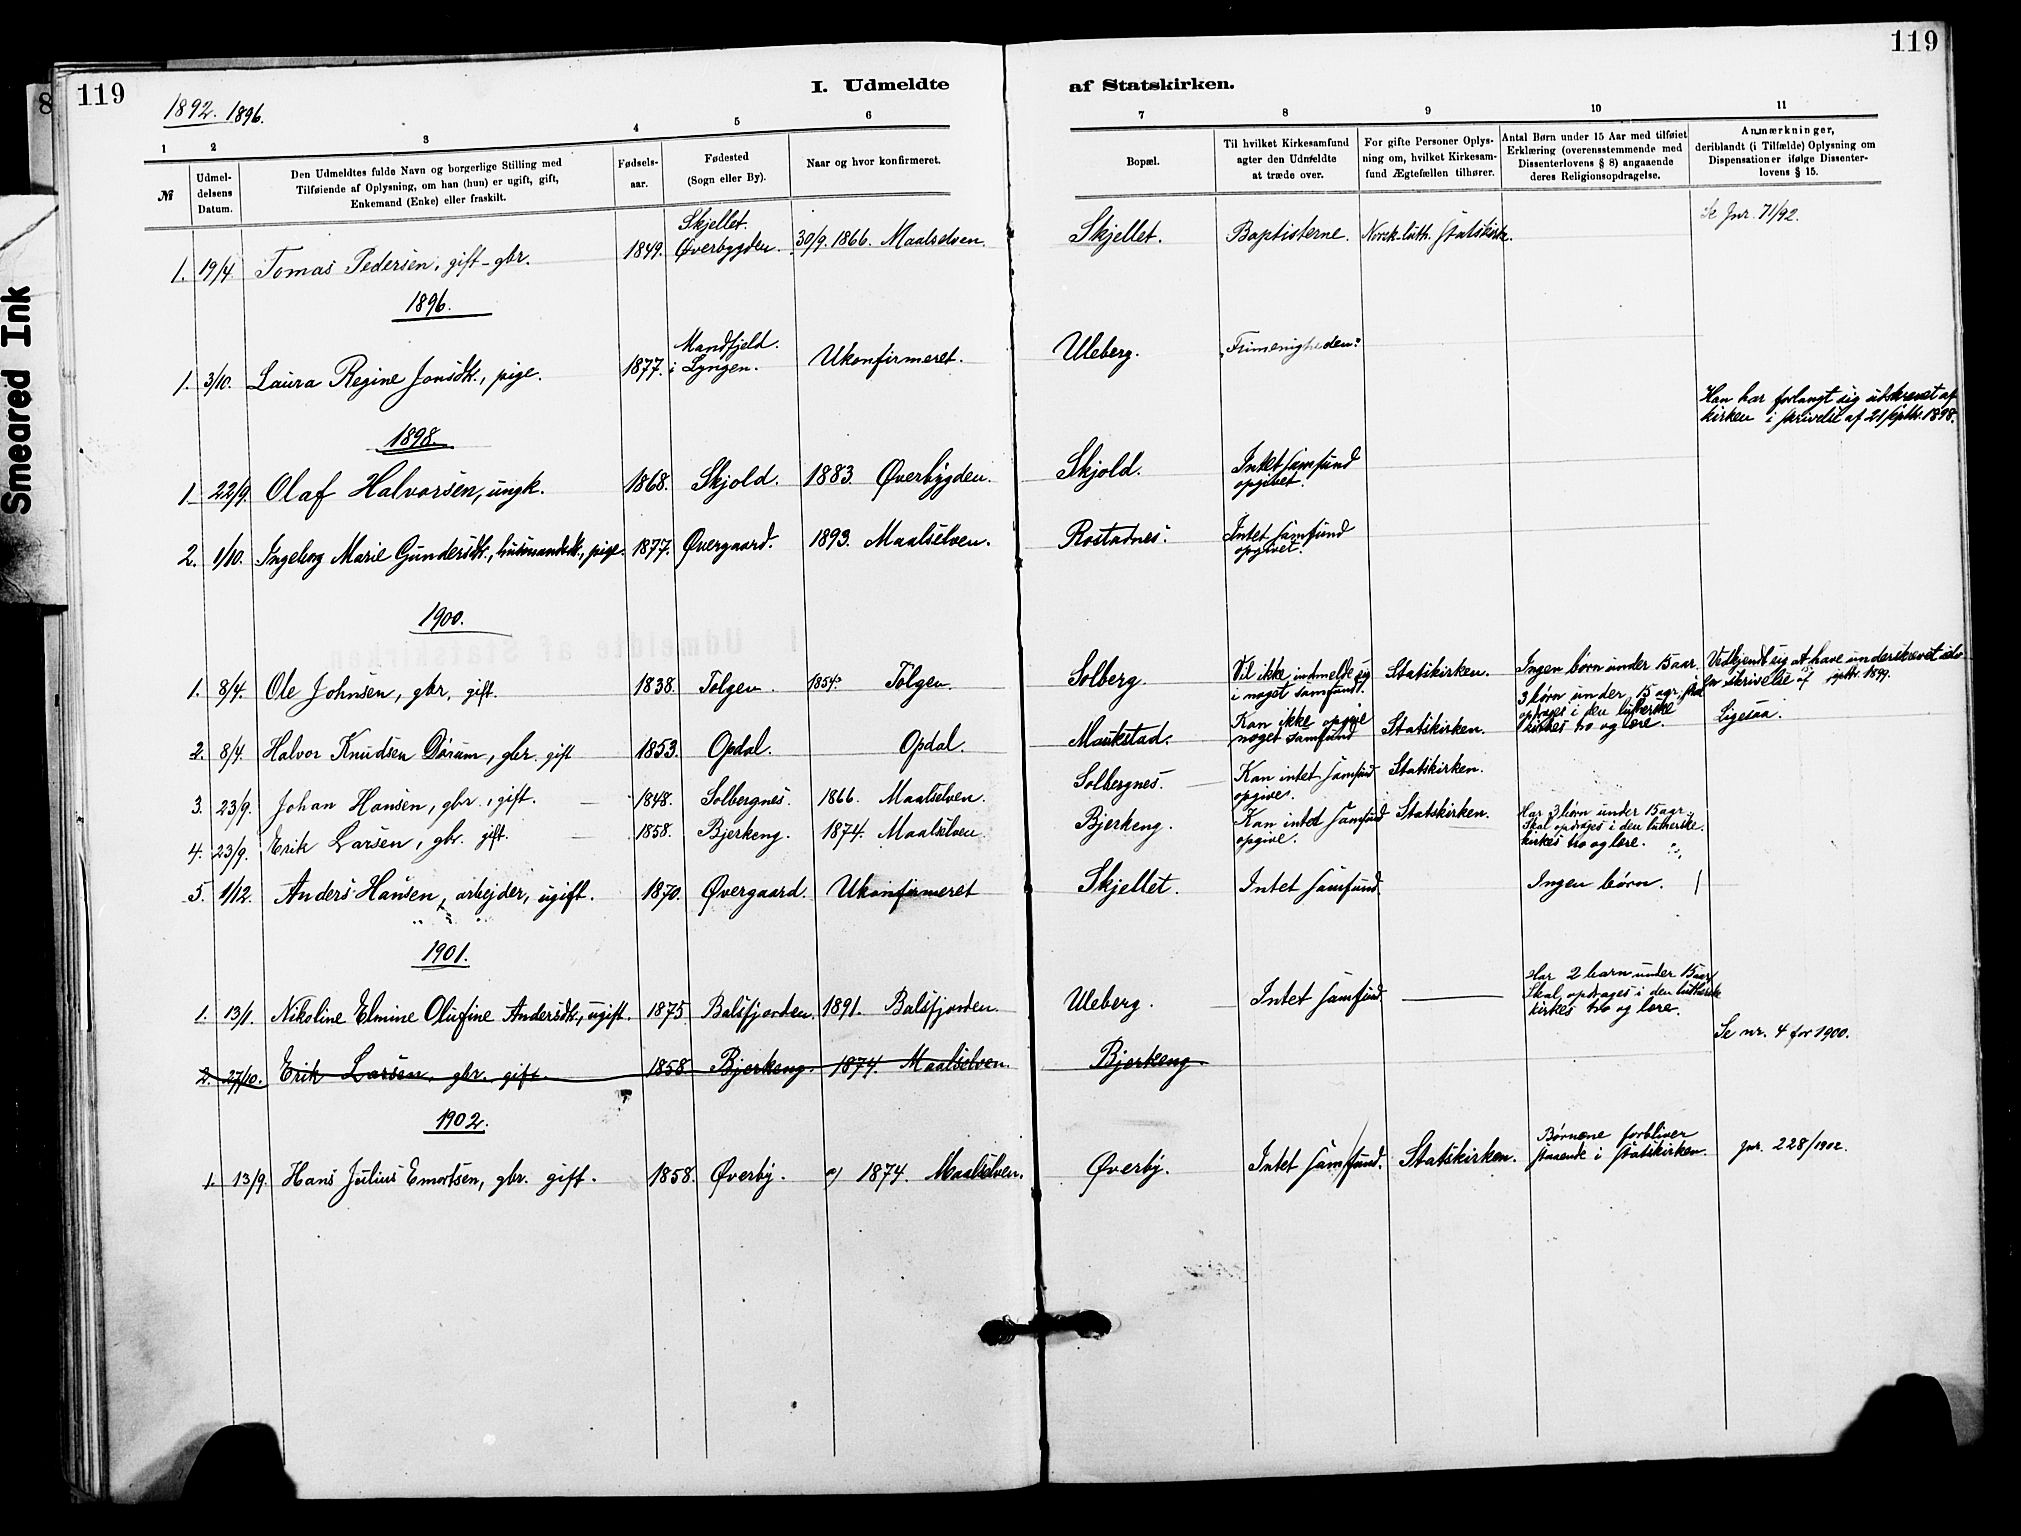 119
119
8
Smeared Ink
I. Udmeldte af Statskirken.
1892. 1896.
1 2 3 4 5 6 7 8 9 10 11
№
Udmel-
delsens
Datum.
Den Udmeldtes fulde Navn og borgerlige Stilling med
Tilføiende af Oplysning, om han (hun) er ugift, gift,
Enkemand (Enke) eller fraskilt.
Fødsels-
aar.
Fødested
(Sogn eller By).
Naar og hvor konfirmeret.
Bopæl.
Til hvilket Kirkesamfund
agter den Udmeldte
at træde over.
For gifte Personer Oplys-
ning om, hvilket Kirkesam-
fund Ægtefællen tilhører.
Antal Børn under 15 Aar med tilføiet
Erklæring (overensstemmende med
Dissenterlovens § 8) angaaende
deres Religionsopdragelse.
Anmærkninger,
deriblandt (i Tilfælde) Oplysning om
Dispensationer ifølge Dissenter-
lovens § 15.
1. 19/4. Tomas Pedersen, gift - gbr. 1849. Skjellet. Øverbygden. 30/9. 1866. Maalselven. Skjellet. Baptisterne. Norsk-luth. Statskirke. Se Jnr. 71/92.
1896.
1. 3/10. Laura Regine Jonsdt., pige. 1877. Mandfjeld. i Lyngen. Ukonfirmeret. Uleberg. "Frimenigheden"
1898.
Han har forlangt sig udskrevet af
kirken i skrivelse af 21 septbr. 1898.
1. 22/9. Olaf Halvorsen, ungk. 1868. Skjold. 1883. Øverbygden. Skjold. Intet samfund opgivet.
2. 1/10. Ingeborg Marie Gundersdt., husmandsdt., pige. 1877. Øvergaard. 1893. Maalselven. Rostadnes. Intet samfund opgivet.
1900.
1. 8/4. Ole Johnsen, gbr, gift. 1838. Tolgen. 1854. Tolgen. Solberg Vil ikke indmelde sig i noget samfund. Statskirken. Ingen børn under 15 aar. Vedkjendt sig at have underskrevet
en skrivelse af septbr. 1899.
2. 8/4. Halvor Knudsen Dørum, gbr. gift 1853. Opdal. Opdal. Kan ikke opgive noget samfund Statskirken. 3 børn under 15 aar, skal opdrages i den lutherske kirkes tro og lære. Ligesaa.
3. 23/9. Johan Hansen, gbr., gift. 1848. Solbergnes. 1866. Maalselven. Solbergnes. Kan intet samfund opgive. Statskirken.
4. 23/9. Erik Larsen, gbr. gift. 1858. Bjerkeng. 1874. Maalselven. Bjerkeng. Kan intet samfund opgive. Statskirken. Har 3 børn under 15 aar. Skal opdrages i den lutherske kirkes tro og lære.
5. 1/12. Anders Hansen, arbejder, ugift. 1870. Øvergaard. Ukonfirmeret Skjellet. Intet samfund. Ingen børn.
1901.
1. 13/1. Nikoline Elmine Olufine Andersdt., ugift. 1875. Balsfjorden. 1891. Balsfjorden. Uleberg. Intet samfund Har 2 barn under 15 aar. Skal opdrages i den luthersk kirkes tro og lære.
2. 27/10. Erik Larsen, gbr. gift. 1858. Bjerkeng. 1874. Maalselven. Bjerkeng. Se nr. 4 for 1900.
1902.
1. 13/9. Hans Julius Emortsen, gbr. gift. 1858. Øverby. 1874. Maalselven. Øverby. Intet samfund. Statskirken. Børnene forbliver staaende i statskirken. Jnr. 228/1902.